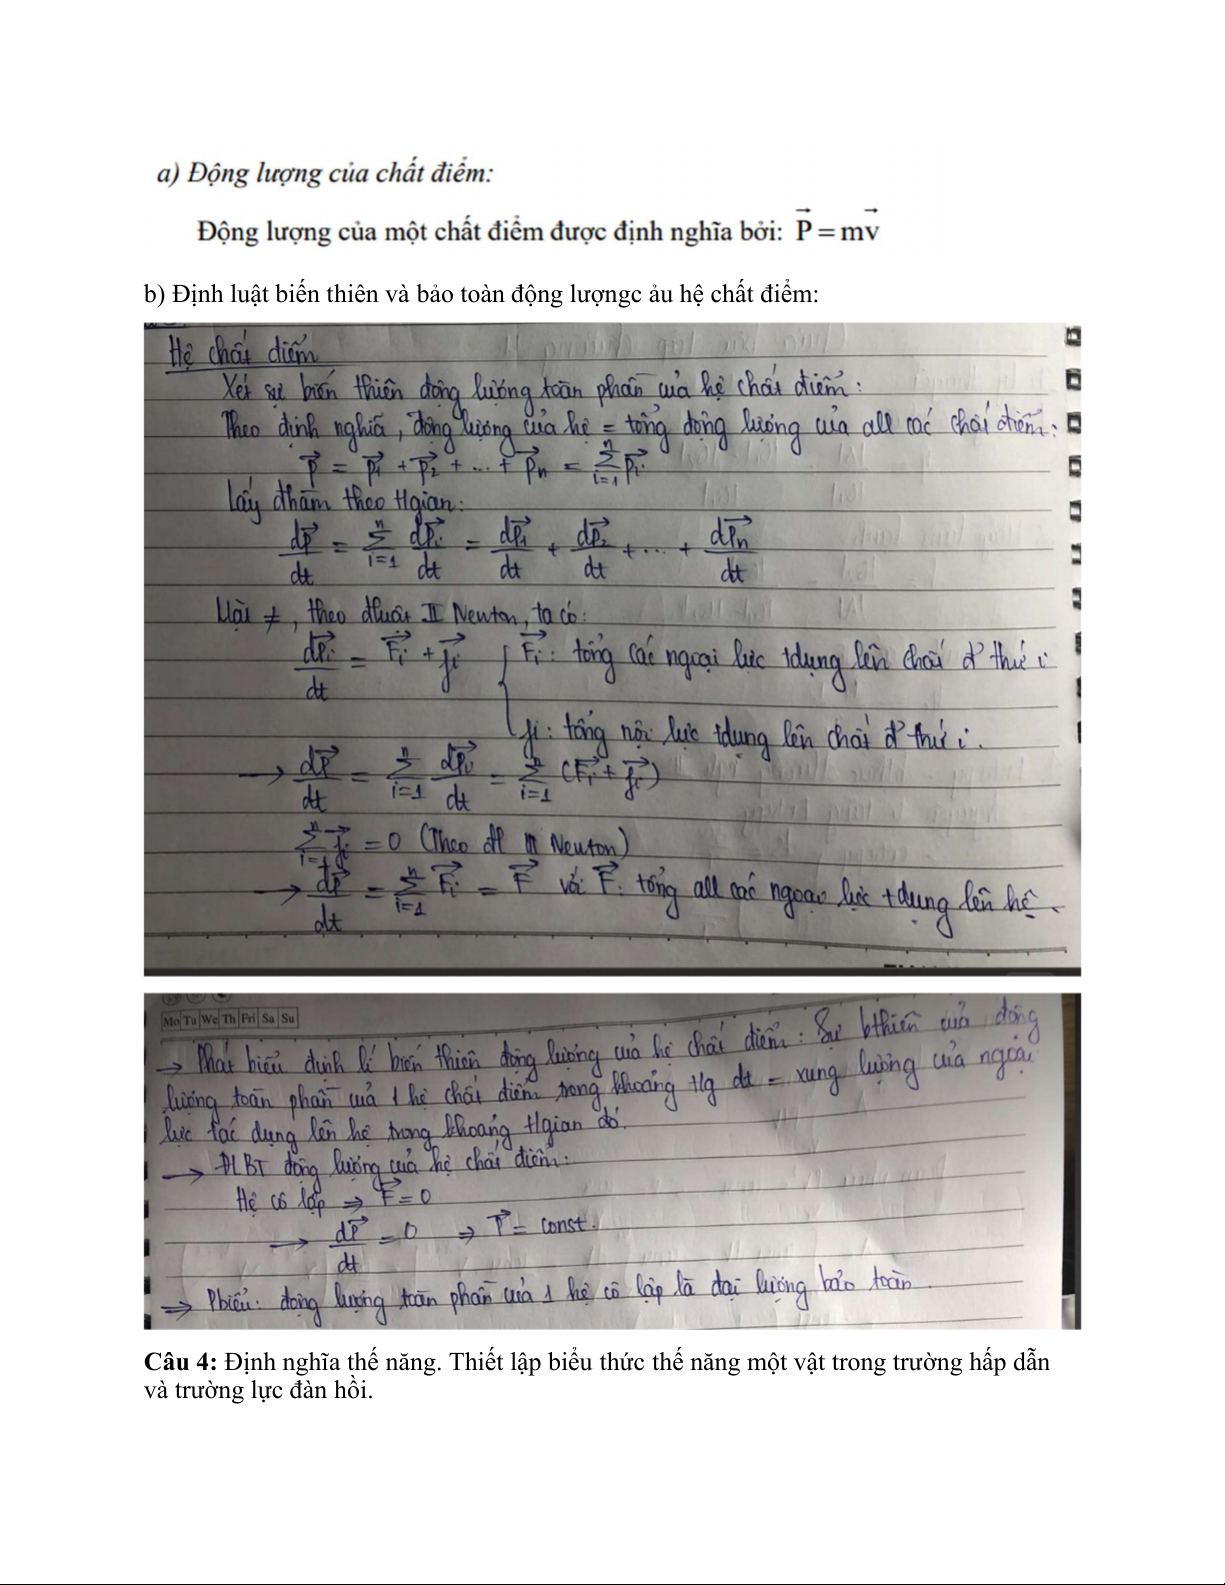 a) Động lượng của chất điểm:
Động lượng của một chất điểm được định nghĩa bởi: P⃗ = mv⃗
b) Định luật biến thiên và bảo toàn động lượngc ảu hệ chất điểm:
Hệ chất điểm
Xét sự biến thiên động lượng toàn phần của hệ chất điểm:
Theo định nghĩa, động lượng của hệ = tổng động lượng của all các chất điểm:
p⃗ = p⃗1 + p⃗2 + ... + p⃗n = Σ(i=1→n) p⃗i
Lấy đhàm theo tgian:
dp⃗/dt = Σ(i=1→n) dp⃗i/dt = dp⃗1/dt + dp⃗2/dt + ... + dp⃗n/dt
Mặt ≠, theo đluật II Newton, ta có:
dp⃗i/dt = F⃗i + f⃗i { F⃗i: tổng các ngoại lực tdụng lên chất đ' thứ i
fi: tổng nội lực tdụng lên chất đ' thứ i.
→ dp⃗/dt = Σ(i=1→n) dp⃗i/dt = Σ(i=1→n) (F⃗i + f⃗i)
Σ(i=1→n) f⃗i = 0 (Theo đl III Newton)
→ dp⃗/dt = Σ(i=1→n) F⃗i = F⃗ với F⃗: tổng all các ngoại lực tdụng lên hệ.
Mo Tu We Th Fri Sa Su
→ Phát biểu định lí biến thiên động lượng của hệ chất điểm: Sự bthiên của động
lượng toàn phần của 1 hệ chất điểm trong khoảng tg dt = xung lượng của ngoại
lực tác dụng lên hệ trong khoảng tgian đó.
→ ĐLBT động lượng của hệ chất điểm:
Hệ cô lập ⇒ F⃗ = 0
→ dp⃗/dt = 0 ⇒ P⃗ = const.
⇒ Pbiểu: động lượng toàn phần của 1 hệ cô lập là đại lượng bảo toàn.
Câu 4: Định nghĩa thế năng. Thiết lập biểu thức thế năng một vật trong trường hấp dẫn
và trường lực đàn hồi.